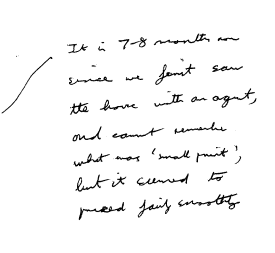 It is 7-8 months now
since we first saw
the house with an agent,
and cannot remember
what was 'small print',
but it seemed to
proceed fairly smoothly